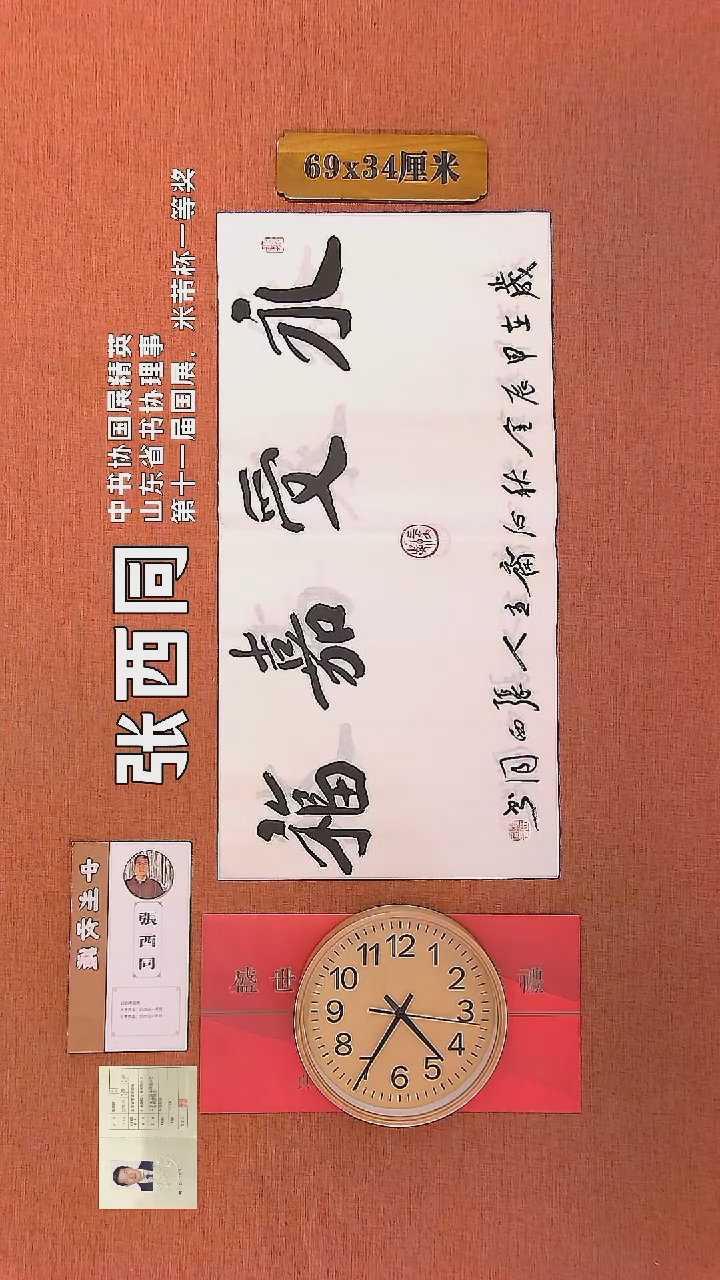 张西同
中书协国展精英
山东省书协理事
第十一届国展、米芾杯一等奖
69x34厘米
永受嘉福
歲在甲辰金秋
齋主人張西同书
張西同
盛世
禮
12
1
2
3
4
5
6
7
8
9
10
11